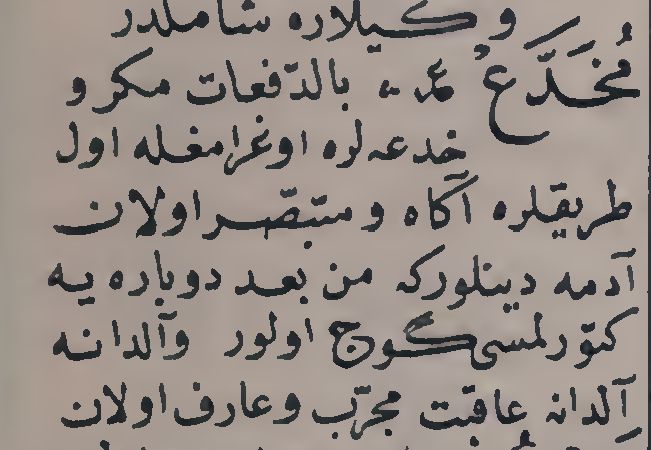 و كيلاره شاملدر
مُخَدَّعٌ عر مـ بالدّفعات مكر و
خدعه لره اوغرامغله اول
طريقلره آكاه و متبصّر اولان
آدمه دينلوركه من بعد دوباره يه
كتورلمسى كوج اولور وآلدانه
آلدانه عاقبت مجرّب وعارف اولان